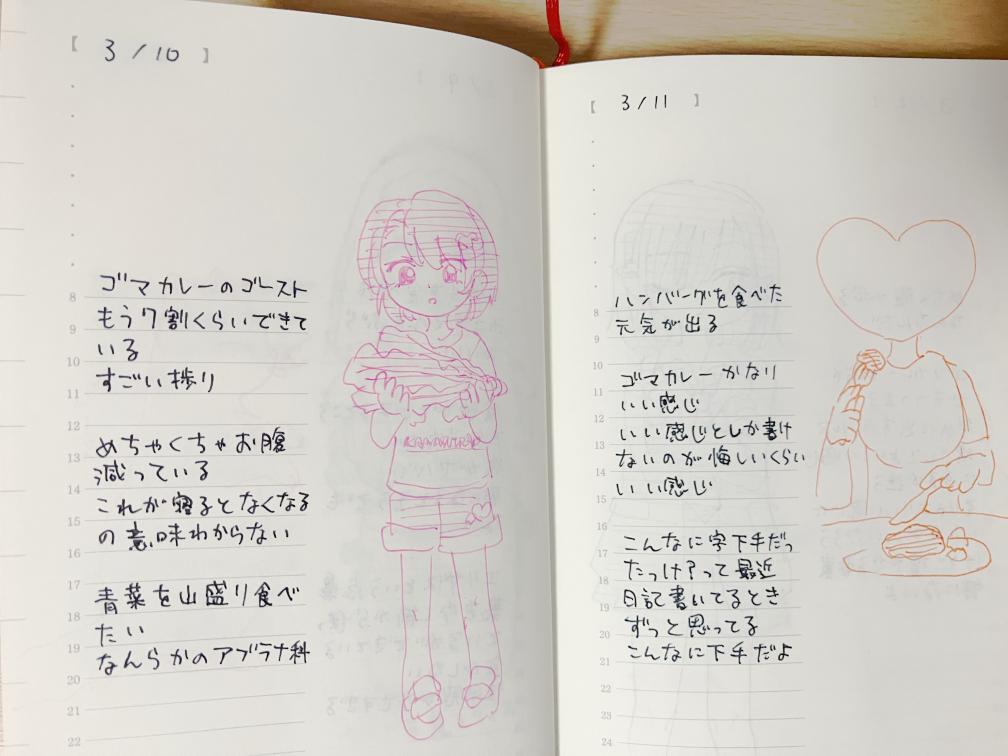 【 3/10 】
8
9
10
11
12
13
14
15
16
17
18
19
20
21
22
ゴマカレーのゴースト
もう7割くらいできて
いる
すごい捗り
めちゃくちゃお腹
減っている
これが寝るとなくなる
の意味わからない
青菜を山盛り食べ
たい
なんらかのアブラナ科
【 3/11 】
8
9
10
11
12
13
14
15
16
17
18
19
20
21
22
23
ハンバーグを食べた
元気が出る
ゴマカレーかなり
いい感じ
いい感じとしか書け
ないのが悔しいくらい
いい感じ
こんなに字下手だっ
たっけ?って最近
日記書いてるとき
ずっと思ってる
こんなに下手だよ